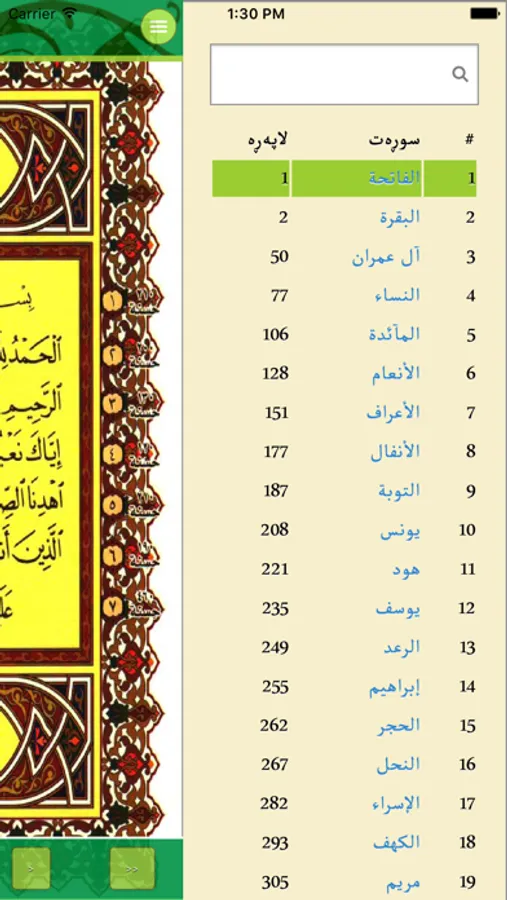 Carrier 1:30 PM
# سورەت لاپەڕە
1 الفاتحة 1
2 البقرة 2
3 آل عمران 50
4 النساء 77
5 المآئدة 106
6 الأنعام 128
7 الأعراف 151
8 الأنفال 177
9 التوبة 187
10 يونس 208
11 هود 221
12 يوسف 235
13 الرعد 249
14 إبراهيم 255
15 الحجر 262
16 النحل 267
17 الإسراء 282
18 الكهف 293
19 مريم 305
بِسْ
١
ٱلْحَمْدُ لِلَّ
٢
ٱلرَّحِيمِ
٣
إِيَّاكَ نَعْبُ
٤
ٱهْدِنَا ٱلصِّ
٥
ٱلَّذِينَ أَن
٦
عَلَ
٧
> >>